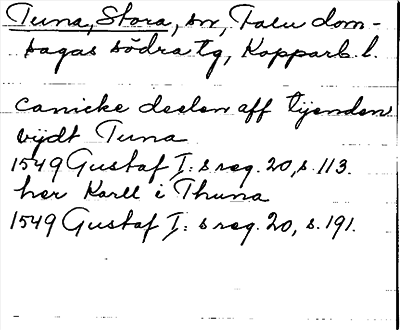 Tuna, Stora, sn, Falu dom-
sagas södra tg, Kopparb. l.
canicke deelen aff tijenden
vijdt Tuna
1549 Gustaf I: s reg. 20, s. 113.
her Karll i Thuna
1549 Gustaf I: s reg. 20, s. 191.